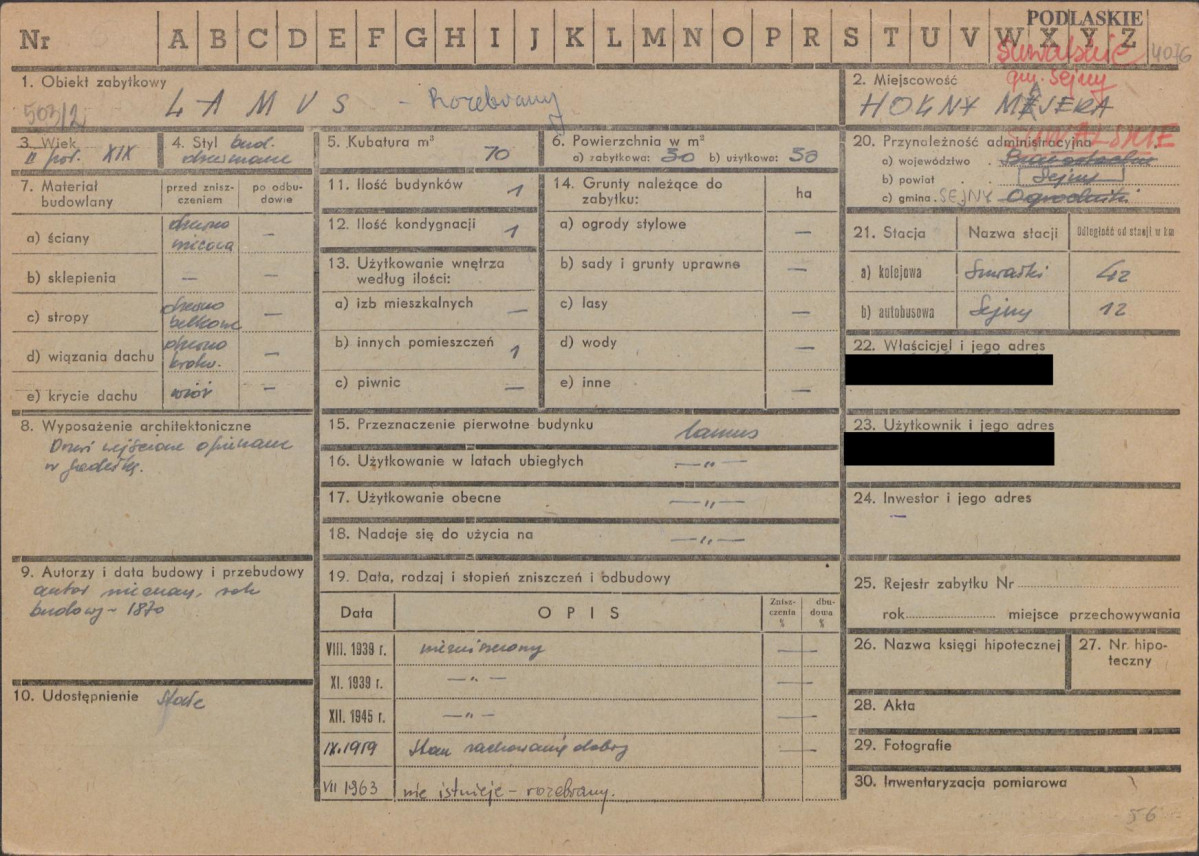 PODLASKIE
Nr A B C D E F G H I J K L M N O P R S T U V W X Y Z 4076
suwalskie
gm. Sejny
1. Obiekt zabytkowy
503/2 LAMUS - Rozebrany
2. Miejscowość
HOŁNY MEJERA
3. Wiek
II poł. XIX
4. Styl bud.
drewniane
5. Kubatura m³
70
6. Powierzchnia w m²
a) zabytkowa: 30 b) użytkowa: 30
SUWALSKIE
20. Przynależność administracyjna
a) województwo . Białostockie
b) powiat . Sejny
c) gmina . SEJNY Ogrodniki
7. Materiał budowlany
przed znisz-
czeniem
po odbu-
dowie
a) ściany
drewno
—
b) sklepienia — —
c) stropy
drewno
belkowe
—
d) wiązania dachu
drewno
krokw.
—
e) krycie dachu wiór —
11. Ilość budynków 1
12. Ilość kondygnacji 1
13. Użytkowanie wnętrza
według ilości:
a) izb mieszkalnych —
b) innych pomieszczeń 1
c) piwnic —
14. Grunty należące do
zabytku:
ha
a) ogrody stylowe —
b) sady i grunty uprawne —
c) lasy —
d) wody —
e) inne —
21. Stacja Nazwa stacji Odległość od stacji w km
a) kolejowa Suwałki 42
b) autobusowa Sejny 12
22. Właściciel i jego adres
23. Użytkownik i jego adres
24. Inwestor i jego adres
—
8. Wyposażenie architektoniczne
Drzwi wejściowe opierzane
w jodełkę.
15. Przeznaczenie pierwotne budynku lamus
16. Użytkowanie w latach ubiegłych —"—
17. Użytkowanie obecne —"—
18. Nadaje się do użycia na —"—
9. Autorzy i data budowy i przebudowy
autor nieznany, rok
budowy - 1870
10. Udostępnienie stałe
19. Data, rodzaj i stopień zniszczeń i odbudowy
Data OPIS
Znisz-
czenia
%
dbu-
dowa
%
VIII. 1939 r. niezniszczony —
XI. 1939 r. —"— —
XII. 1945 r. —"— —
IX. 1959 Stan zachowania dobry —
VII 1963 nie istnieje - rozebrany.
25. Rejestr zabytku Nr
rok miejsce przechowywania
26. Nazwa księgi hipotecznej
27. Nr hipo-
teczny
28. Akta
29. Fotografie
30. Inwentaryzacja pomiarowa
56